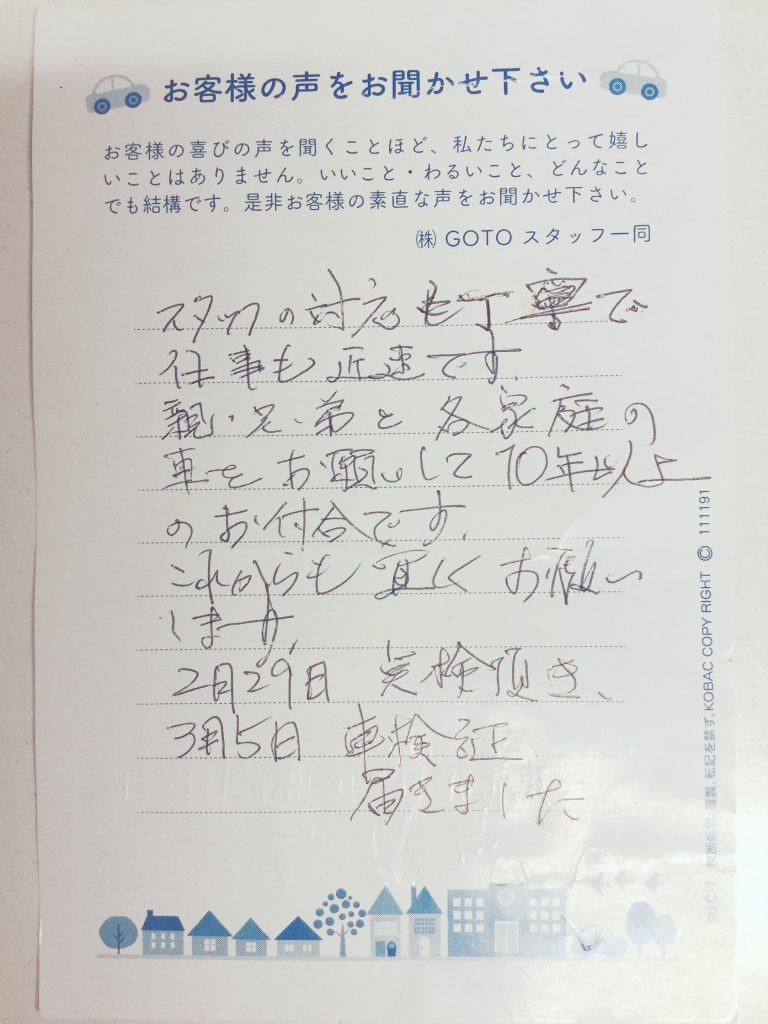 お客様の声をお聞かせ下さい
お客様の喜びの声を聞くことほど、私たちにとって嬉し
いことはありません。いいこと・わるいこと、どんなこと
でも結構です。是非お客様の素直な声をお聞かせ下さい。
㈱ GOTO スタッフ一同
スタッフの対応も丁寧で
仕事も迅速です。
親・兄・弟と各家庭の
車をお願いして10年以上
のお付合です。
これからも宜しくお願い
します。
2月29日 車検頂き、
3月5日 車検証
届きました
無断転載、複製、転記を禁ず。KOBAC COPY RIGHT © 111191